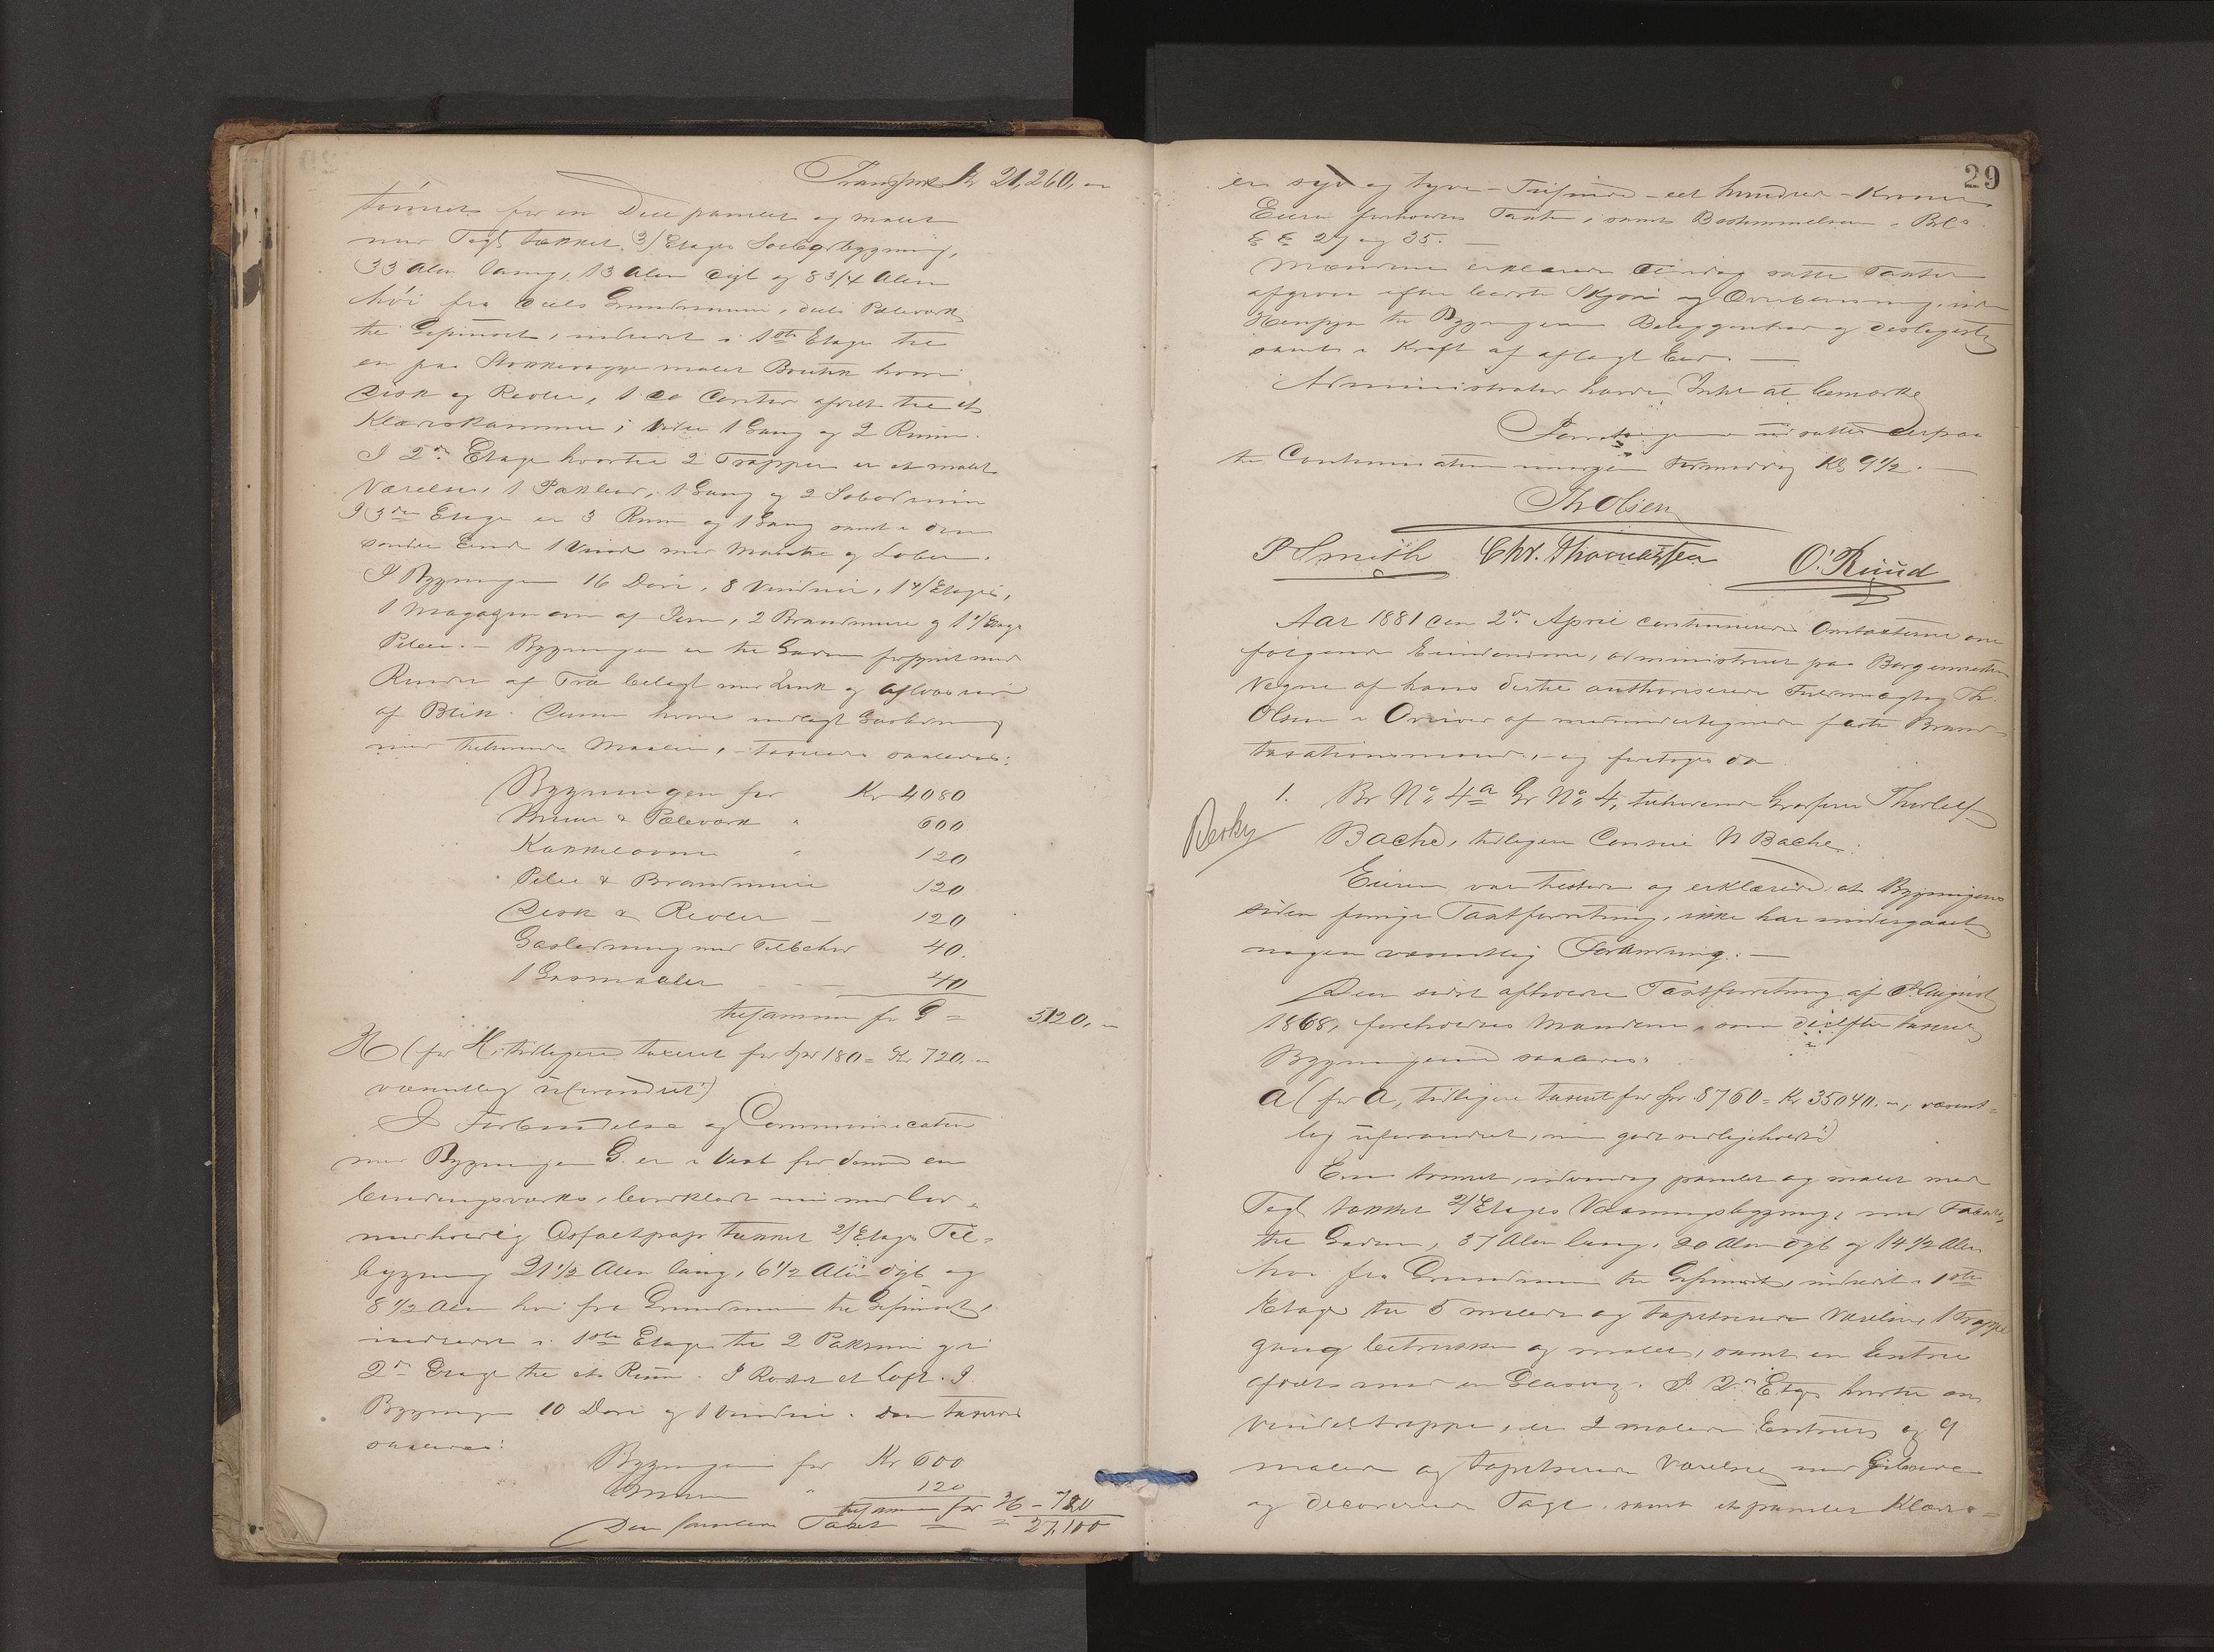 Transport Kr 21,260,-
tømret for en Deel panelet og malet
med Tagst tækket 3/Etages Søebodbygning,
33 Alen lang, 13 Alen dyb og 8 3/4 Alen
høi fra deels Grundmuur, deels Pæleværk
til Gesimset, indredet i 1ste Etage til
en paa Stokkevægge malet Boutik hvori
Disk og Reoler, 1 do Contor afdelt til et
Klædeskammer; videre 1 Gang og 2 Rum.
I 2den Etage hvortil 2 Trapper er et malet
Værelse, 1 Pakbod, 1 Gang og 2 Søbodrum
I 3die Etage er 3 Rum og 1 Gang samt i den
søndre Ende 1 Vinde med
I Bygningen 16 Døre, 8 Vinduer, 1 4/Etages,
1 Magazinovn af Jern, 2 Brandmure og 1 2/Etage
Pibe. - Bygningen er til Gaden forsynet med
Render af Træ belagt med Zink og Afløbsrør
af Blik. Denne hvori indlagt Gasledning
med tilhørende Maaler, - taxeredes saaledes:
Bygningen for Kr 4080
Muur & Pæleværk " 600
Kakkelovne " 120
Piber & Brandmure 120
Disk & Reoler - 120
Gasledning med Tilbehør 40.
1 Gasmaaler - - 40
tilsammen for G = 5120,-
H (for H, tidligere taxeret for Spd 180 = Kr 720.-
væsentlig uforandret)
I Forbindelse og Communication
med Bygningen G. er i Vest for denne en
bindingsværks, bordklædt nu med
Asfaltpap tækket 2/Etages Til-
bygning 21 1/2 Alen lang, 6 1/2 Alen dyb og
8 1/2 Alen høi fra Grundmuur til Gesimset,
indredet i 1ste Etage til 2 Pakrum og i
2den Etage til et Rum. I Røstet et Loft. I
Bygningen 10 Døre og 1 Vindue. Den taxeres
saaledes:
Bygningen for Kr 600
Muren " 120
tilsammen for H - 720
Den samlede Taxt = = 27,100
29
er syv og tyve - Tusinde - eet hundrede - Kroner
Eieren forhørtes Taxten, samt Bestemmelsen i Brl.
§ § 27 og 35. -
Mændene erklærede Eindog satte Taxter
afgivne efter bedste Skjøn og Overbevisning, med
Hensyn til Bygningernes Beliggenhed og desligeste
samt i Kraft af aflagt Eed. -
Administrator havde Intet at bemærke
Forretningen udsattes derpaa
til Continuation imorgen Formiddag Kl 9 1/2. -
Th Olsen
P Smith Chr. Thomassen O. Ruud
Aar 1881 den 2den April continueredes Omtaxterne over
følgende Eiendomme, administreret paa Borgermesterens
Vegne af hans dertil authoriserede Fuldmægtig Th.
Olsen i Overvær af medundertegnede faste Brand-
taxationsmænd, - og foretoges da
1. Br No 4a Gr No 4, tilhørende Grosserer Thorleif
Bache, tidligere Consul N Bache.
Eieren var tilstede og erklærede, at Bygningerne
siden forrige Taxtforretning, ikke har undergaaet
nogen væsentlig Forandring. -
Den sidst afholdte Taxtforretning af August
1868, foreholdtes Mændene, som derefter taxerede
Bygningerne saaledes:
A (for A, tidligere taxeret for Spd 8760 = Kr 35040.-, væsent-
lig uforandret, men godt vedligeholdt)
Een tømret, udvendig panelet og malet med
Tagst tækket 2/Etages Vaaningsbygning, med Facade,
til Gaden, 37 Alen lang, 20 Alen dyb og 14 1/2 Alen
høi fra Grundmuur til Gesimset, indredet i 1ste
Etage til 5 malede og tapetserede Værelser, 1 Trappe
gang betrukken og malet, samt en Entrée
afdeelt med en Glasvæg. I 2den Etage hvortil en
Vindeltrappe, er 2 malede Entreer og 9
malede og tapetserede Værelser med gibsede
og decorerede Tage, samt et panelet Klæde-